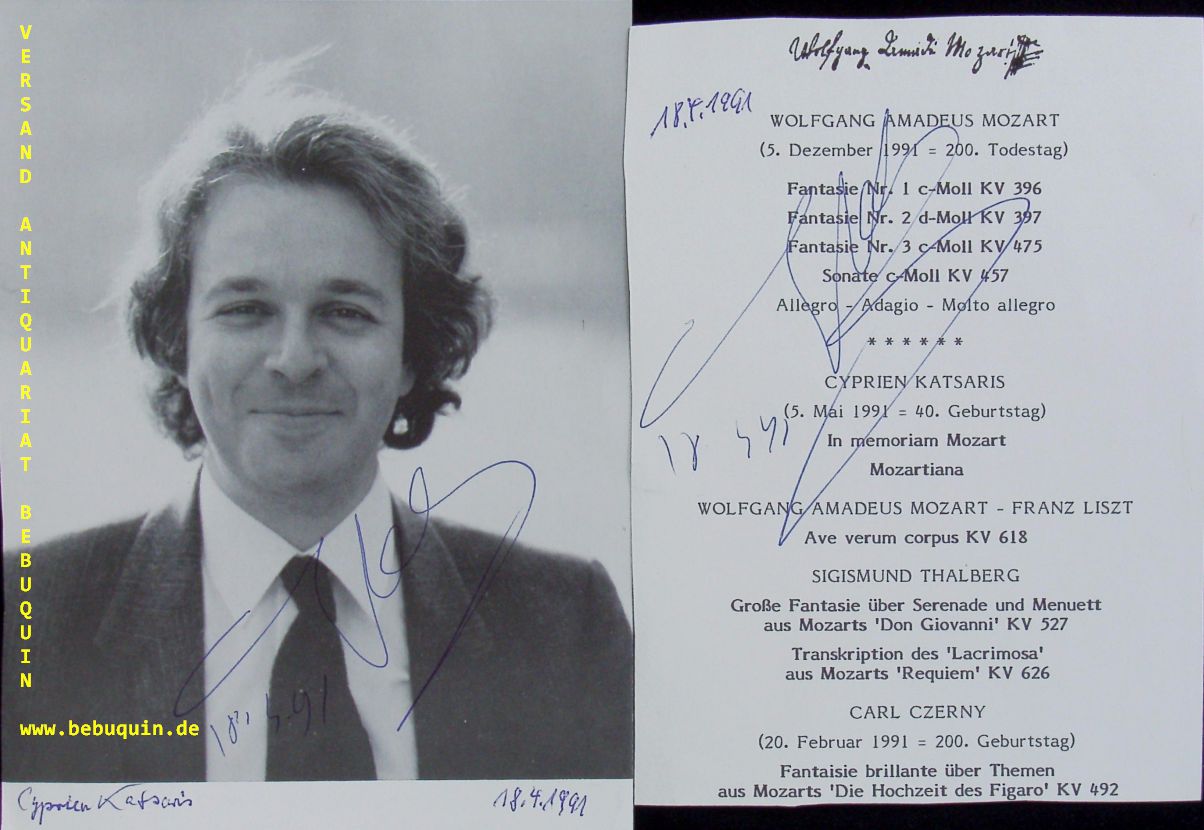 VERSAND ANTIQUARIAT BEBUQUIN
www.bebuquin.de
18.4.91
Cyprien Katsaris 18.4.1991
Wolfgang Mozart
18.4.1991
WOLFGANG AMADEUS MOZART
(5. Dezember 1991 = 200. Todestag)
Fantasie Nr. 1 c-Moll KV 396
Fantasie Nr. 2 d-Moll KV 397
Fantasie Nr. 3 c-Moll KV 475
Sonate c-Moll KV 457
Allegro - Adagio - Molto allegro
* * * * * *
CYPRIEN KATSARIS
(5. Mai 1991 = 40. Geburtstag)
18 4 91
In memoriam Mozart
Mozartiana
WOLFGANG AMADEUS MOZART - FRANZ LISZT
Ave verum corpus KV 618
SIGISMUND THALBERG
Große Fantasie über Serenade und Menuett
aus Mozarts 'Don Giovanni' KV 527
Transkription des 'Lacrimosa'
aus Mozarts 'Requiem' KV 626
CARL CZERNY
(20. Februar 1991 = 200. Geburtstag)
Fantaisie brillante über Themen
aus Mozarts 'Die Hochzeit des Figaro' KV 492